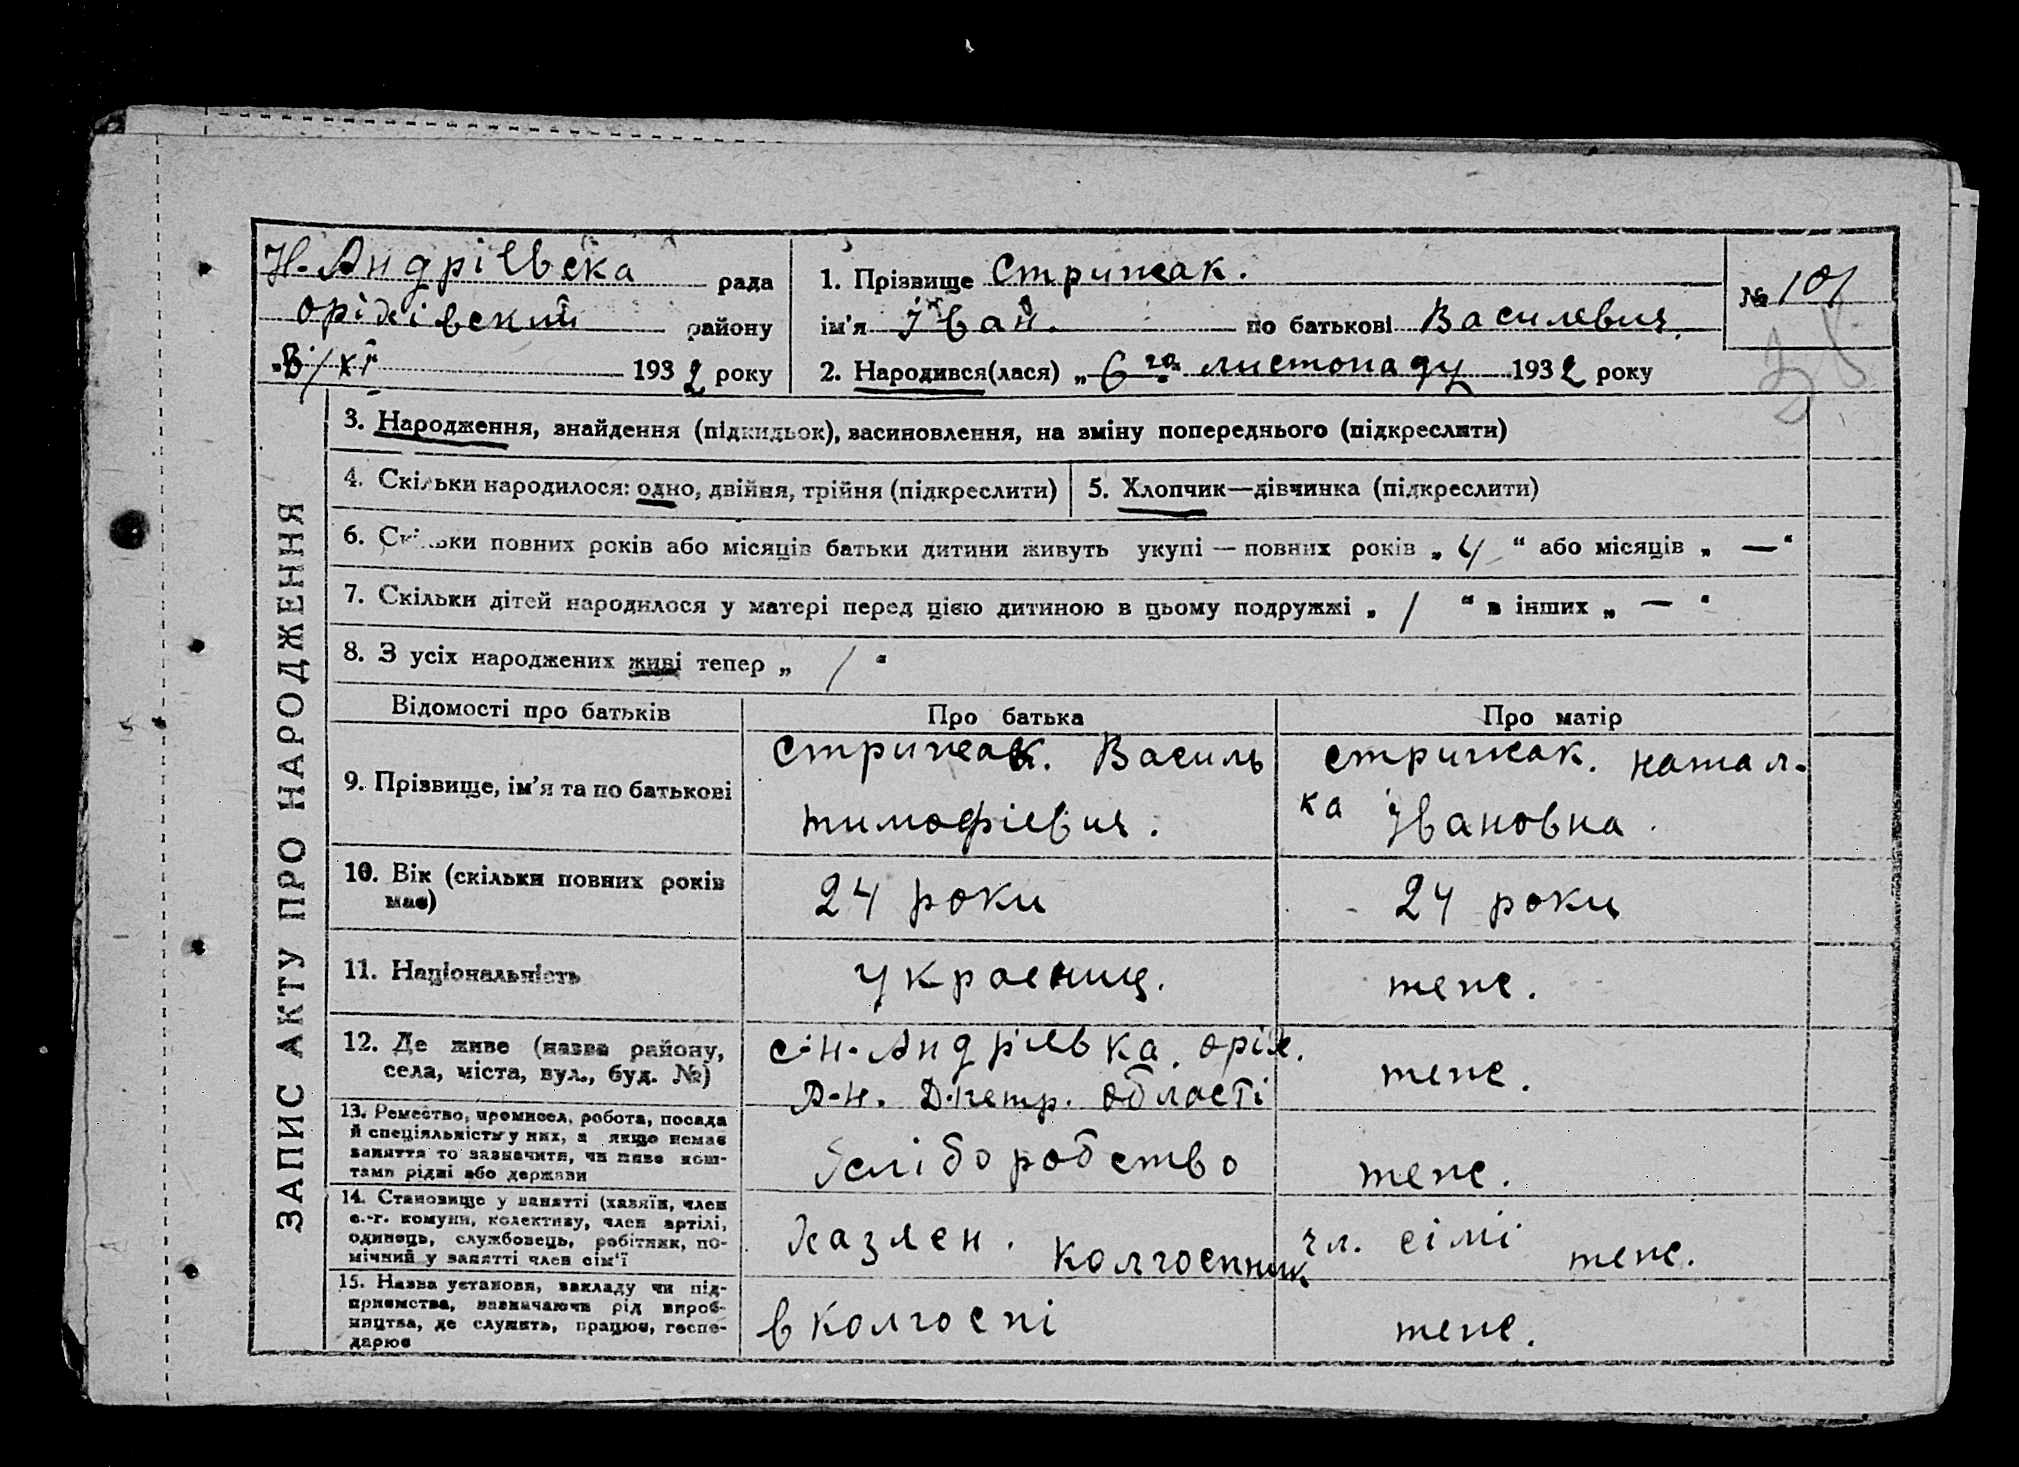 Н. Андрієвска рада
оріхівский району
8/хі 1932 року
1. Прізвище Стрижак.
ім'я Іван. по батькові Василевич.
2. Народився(лася) „6 го листопаду 1932 року
№ 101
ЗАПИС АКТУ ПРО НАРОДЖЕННЯ
3. Народження, знайдення (підкидьок), васиновлення, на зміну попереднього (підкреслити)
4. Скільки народилося: одно, двійня, трійня (підкреслити)
5. Хлопчик—дівчинка (підкреслити)
6. Скільки повних років або місяців батьки дитини живуть укупі — повних років „ 4 “ або місяців „ — “
7. Скільки дітей народилося у матері перед цією дитиною в цьому подружжі „ 1 “ в інших „ — “
8. З усіх народжених живі тепер „ 1 “
Відомості про батьків
Про батька
Про матір
9. Прізвище, ім'я та по батькові
Стрижак. Василь
тимофієвич.
стрижак. натал-
ка Івановна.
10. Вік (скільки повних років
має)
24 роки
24 роки
11. Національність
украєниц.
теже.
12. Де живе (назва району,
села, міста, вул., буд. №)
с. Н. Андрієвка. оріх.
Р-н. Д.петр. області
теже.
13. Ремество, промисел, робота, посада
й спеціяльність у них, а якщо немає
заняття то зазначити, чи живе кош-
тами рідні або держави
хліборобство
теже.
14. Становище у занятті (хазяїн, член
с.-г. комуни, колективу, член артілі,
одинець, службовець, робітник, по-
мічний у занятті член сім'ї
колгоспник
чл. сімі теже.
15. Назва установи, закладу чи під-
приємства, зазначаючи рід вироб-
ництва, де служить, працює, госпо-
дарює
в колгоспі
теже.